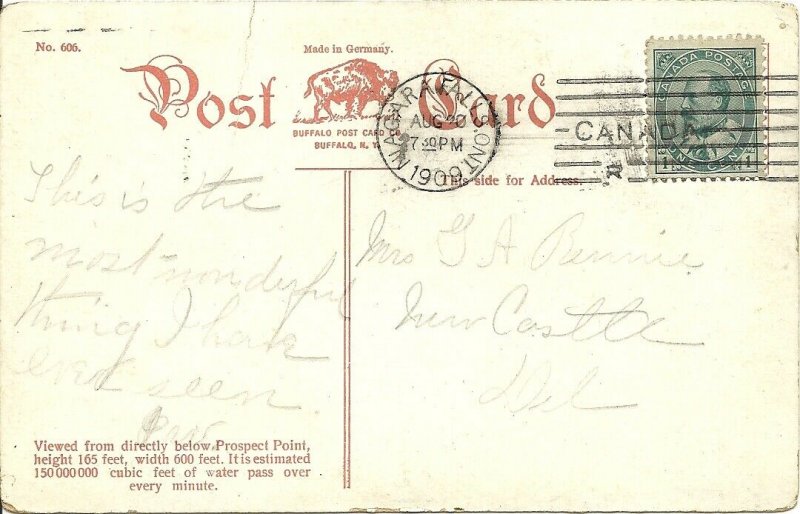 No. 606.
Made in Germany.
Post Card
BUFFALO POST CARD CO.
BUFFALO, N. Y.
NIAGARA FALLS. ONT
AUG 20
7 30 PM
1909
CANADA
CANADA POSTAGE
ONE CENT
1 1
This side for Address.
This is the
most wonderful
thing I have
ever seen
Mrs G A Bennie
New Castle
Del
Viewed from directly below Prospect Point,
height 165 feet, width 600 feet. It is estimated
150000000 cubic feet of water pass over
every minute.